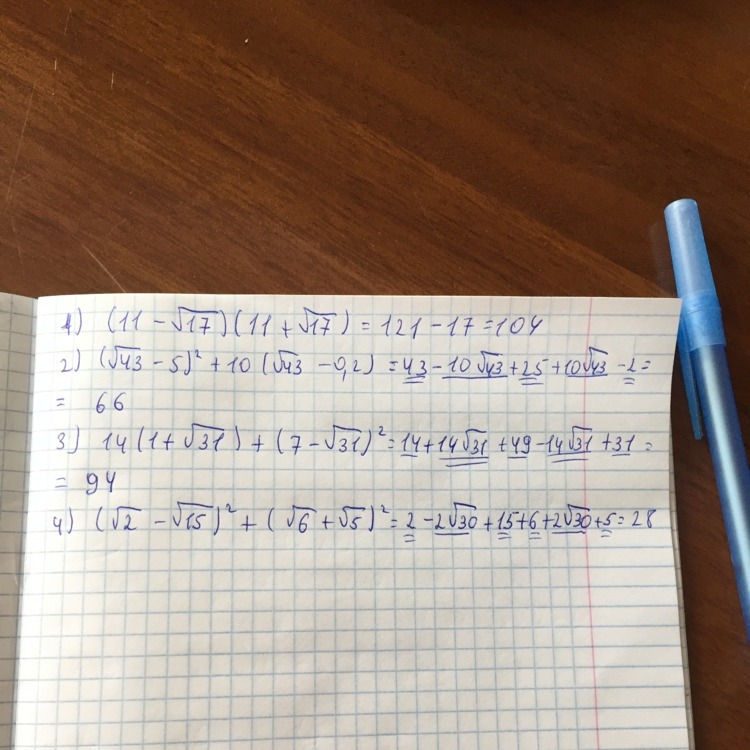 1) (11 - √17)(11 + √17) = 121 - 17 = 104
2) (√43 - 5)² + 10 (√43 - 0,2) = 43 - 10√43 + 25 + 10√43 - 2 =
= 66
3) 14(1 + √31) + (7 - √31)² = 14 + 14√31 + 49 - 14√31 + 31 =
= 94
4) (√2 - √15)² + (√6 + √5)² = 2 - 2√30 + 15 + 6 + 2√30 + 5 = 28